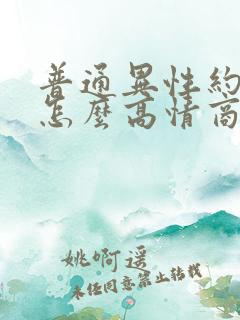 普通異性約
怎麼高情商
姚啊遥
未经同意禁止转载